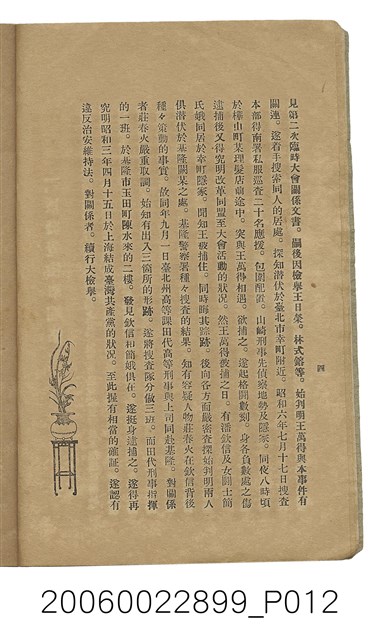 四
見第二次臨時大會關係文書。嗣後因檢舉王日榮。林式鎔等。始判明王萬得與本事件有
關連。遂着手搜索同人的居處。探知潛伏於臺北市幸町附近。昭和六年七月十七日搜查
本部得南署私服巡査二十名應援。包圍配置。山崎刑事先偵察地勢及隱家。同夜八時頃
於樺山町某理髮店前途中。突與王萬得相遇。欲捕之。遂起格鬪數刻。身各負數處之傷
逮捕後又得究明改革同盟至大會活動的狀況。然王萬得被捕之日。有潘欽信及女鬪士簡
氏娥同居於幸町隱家。聞知王被捕住。同時晦其踪跡。後向各方面嚴密査探始判明兩人
俱潛伏於基隆關某之處。基隆警察署種々搜查的結果。知有容疑人物莊春火在欽信背後
種々策動的事實。故同年九月一日臺北州高等課田代高等刑事與上司同赴基隆。對關係
者莊春火嚴重取調。始知有出入三個所的形跡。遂將搜査隊分做三班。而田代刑事指揮
的一班。於基隆市玉田町陳水來的二樓。發見欽信和簡娥俱在。遂挺身逮捕之。遂得再
究明昭和三年四月十五日於上海結成臺灣共產黨的狀況。至此握有相當的確証。遂認有
違反治安維持法。對關係者。續行大檢舉。
20060022899_P012